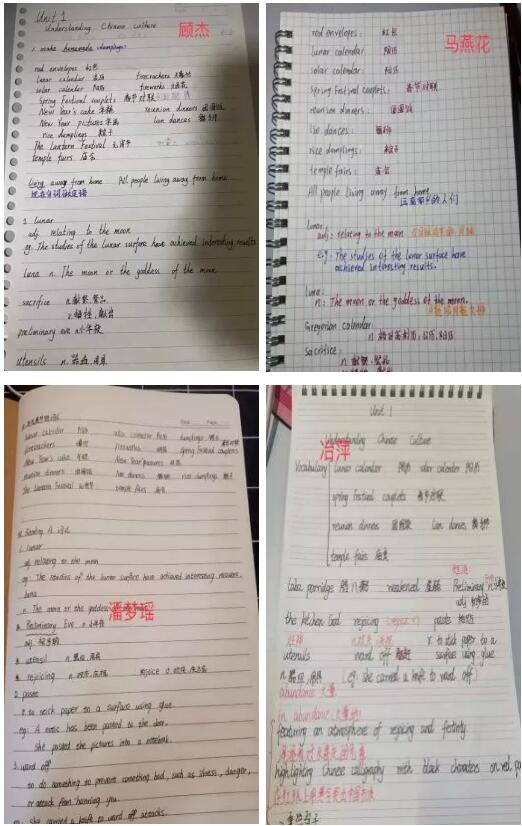 Unit 1
Understanding Chinese culture
顾杰
1. make homemade dumplings:
red envelopes 红包
lunar calendar 农历 firecrackers
solar calendar 阳历 fireworks 烟花
Spring Festival couplets 春节对联
New Year's cake 年糕 reunion dinners 团圆饭
New Year pictures 年画 lion dances 舞狮
rice dumplings 粽子
The Lantern Festival 元宵节
temple fairs 庙会
Living away from home All people living away from home
现在分词做定语
1. lunar
adj. relating to the moon
eg. The studies of the lunar surface have achieved interesting results
luna n. The moon or the goddess of the moon
sacrifice n. 献祭, 祭品
v. 牺牲, 献出
preliminary eve n. 小年夜
utensils n. 器皿, 用具
马燕花
red envelopes: 红包
lunar calendar: 阴历
solar calendar: 阳历
Spring Festival couplets: 春节对联
reunion dinners: 团圆饭
lion dances: 舞狮
rice dumplings: 粽子
temple fairs: 庙会
All people living away from home
远离家乡的人们
lunar:
adj: relating to the moon
e.g: The studies of the lunar surface have
achieved interesting results.
luna:
n: The moon or the goddess of the moon.
Gregorian calendar:
Sacrifice:
n. 献祭, 祭品
lunar calendar 阴历 solar calendar 阳历 dumplings
firecrackers 爆竹 fireworks Spring Festival couplets
New Year's cake 年糕 New Year pictures 年画
reunion dinners 团圆饭 lion dances 舞狮 rice dumplings 粽子
the Lantern Festival 元宵节 temple fairs 庙会
1. lunar
adj. relating to the moon
eg: The studies of the lunar surface have achieved interesting results.
luna
n. The moon or the goddess
潘梦瑶
Preliminary Eve n. 小年夜
utensil n. 器皿, 用具
rejoicing n. rejoice v.
2. paste
v. to stick paper to a surface using glue
eg: A note has been pasted to the door.
She pasted the pictures into a notebook.
3. ward off
to do something to prevent something bad, such as illness, danger,
or attack from harming you.
she carried a knife to ward off attacks.
Unit 1
Understanding Chinese Culture
冶萍
Vocabulary lunar calendar 阴历 solar calendar 阳历
spring festival couplets 春节对联
reunion dinners 团圆饭 lion dances 舞狮
temple fairs 庙会
laba porridge 腊八粥 Preliminary
adj.
the kitchen God rejoicing (rejoice v) paste
灶神 v. to stick paper to a
utensils ward off surface using glue
n. 器皿, 用具 (eg: she carried a knife to ward off)
abundance 大量
in abundance (大量地)
featuring an atmosphere of rejoicing and festivity
highlighting Chinese calligraphy with black characters on red paper